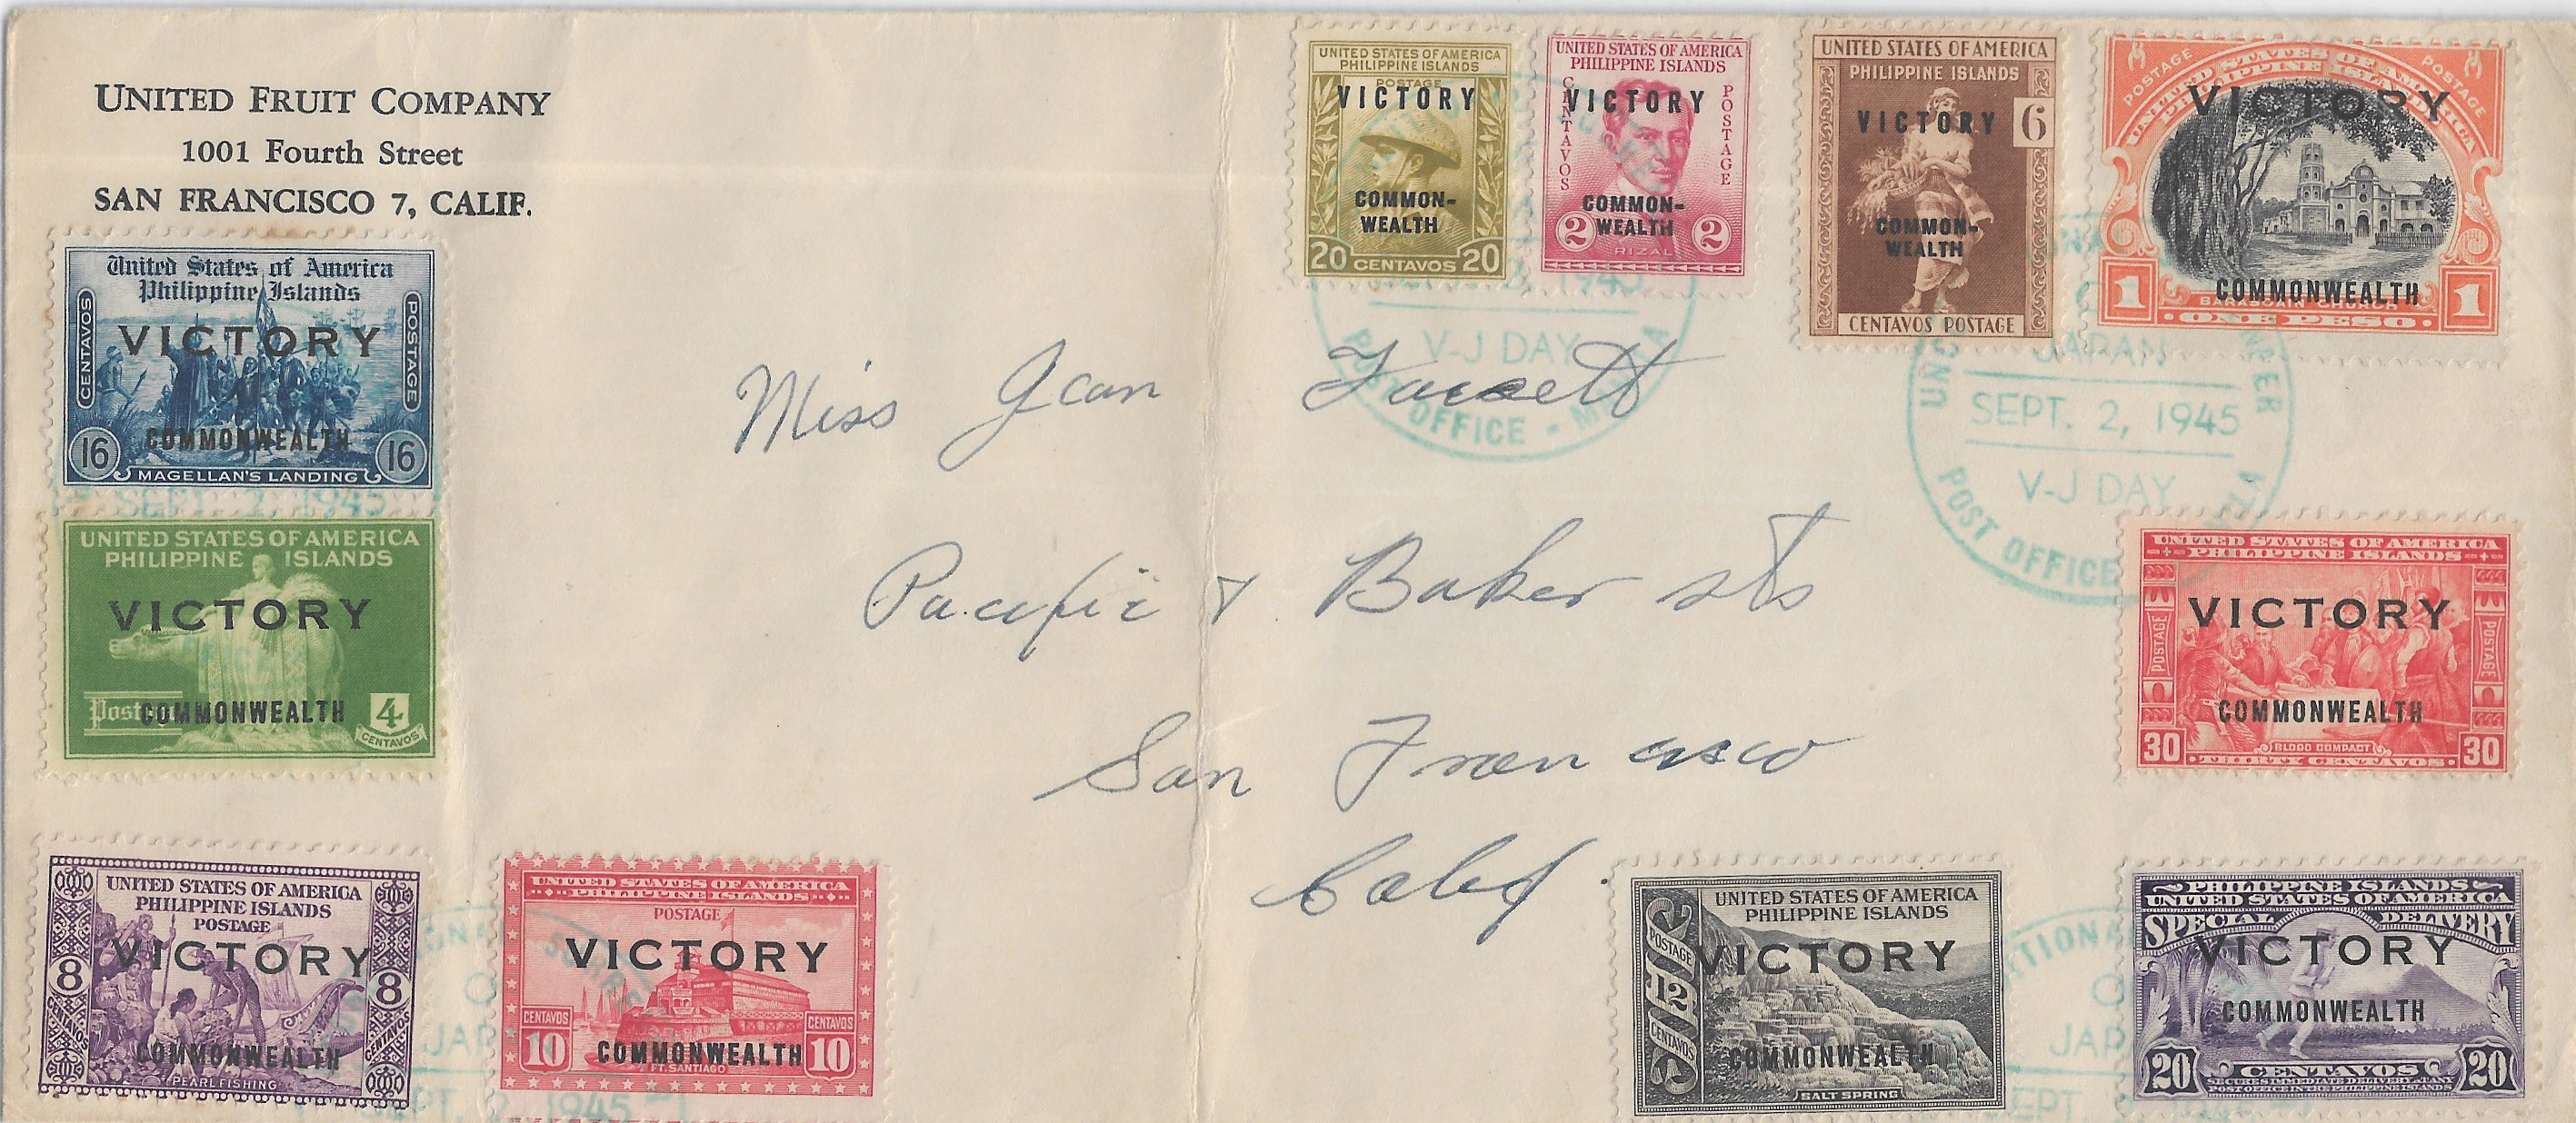 UNITED FRUIT COMPANY
1001 Fourth Street
SAN FRANCISCO 7, CALIF.
UNITED STATES OF AMERICA
PHILIPPINE ISLANDS
POSTAGE
VICTORY
COMMON-
WEALTH
20 CENTAVOS 20
UNITED STATES OF AMERICA
PHILIPPINE ISLANDS
CENTAVOS
POSTAGE
VICTORY
COMMON-
WEALTH
2 2
RIZAL
UNITED STATES OF AMERICA
PHILIPPINE ISLANDS
VICTORY
6
COMMON-
WEALTH
CENTAVOS POSTAGE
POSTAGE POSTAGE
UNITED STATES OF AMERICA
PHILIPPINE ISLANDS
VICTORY
COMMONWEALTH
1 1
ONE PESO
1945
V-J DAY
POST OFFICE - MANILA
JAPAN
SEPT. 2, 1945
V-J DAY
POST OFFICE
United States of America
Philippine Islands
CENTAVOS
POSTAGE
VICTORY
COMMONWEALTH
16 16
MAGELLAN'S LANDING
SEPT. 2, 1945
UNITED STATES OF AMERICA
PHILIPPINE ISLANDS
VICTORY
Postage
COMMONWEALTH
4
CENTAVOS
Miss Jean
Pacific & Baker sts
San Francisco
Calif.
UNITED STATES OF AMERICA
PHILIPPINE ISLANDS
POSTAGE POSTAGE
VICTORY
COMMONWEALTH
30 BLOOD COMPACT 30
THIRTY CENTAVOS
UNITED STATES OF AMERICA
PHILIPPINE ISLANDS
POSTAGE
VICTORY
8 8
CENTAVOS CENTAVOS
COMMONWEALTH
PEARL FISHING
UNITED STATES OF AMERICA
PHILIPPINE ISLANDS
POSTAGE
VICTORY
CENTAVOS CENTAVOS
10 COMMONWEALTH 10
FT. SANTIAGO
1945
UNITED STATES OF AMERICA
PHILIPPINE ISLANDS
POSTAGE
VICTORY
12
CENTAVOS
COMMONWEALTH
SALT SPRING
PHILIPPINE ISLANDS
UNITED STATES OF AMERICA
SPECIAL DELIVERY
VICTORY
COMMONWEALTH
20 CENTAVOS 20
SECURES IMMEDIATE DELIVERY AT ANY
POST OFFICE IN PHILIPPINE ISLANDS